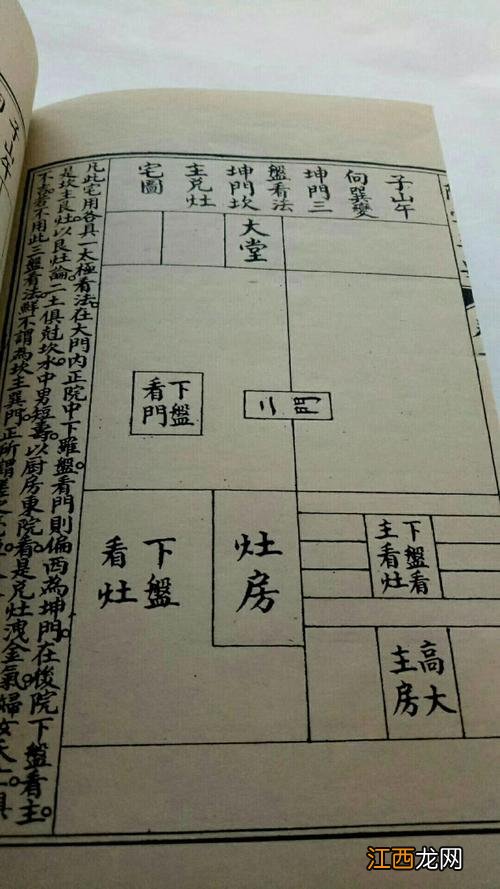 子山午
向巽變
坤門三
盤看法
坤門坎
主兌灶
宅圖
大堂
二門
下盤
看門
下盤看
主看灶
高大
主房
灶房
下盤
看灶
凡此宅用各具一太極看法。在大門內正院中下羅盤看門則偏西為坤門。在後院下盤看主。
是坎主艮灶以艮灶論。二土俱尅坎水中男短壽。以厨房東院看是兌灶洩金氣婦女夭
不吉若不用此三盤看法鮮不謂為坎主巽門正所謂差
子山午
江西龙网